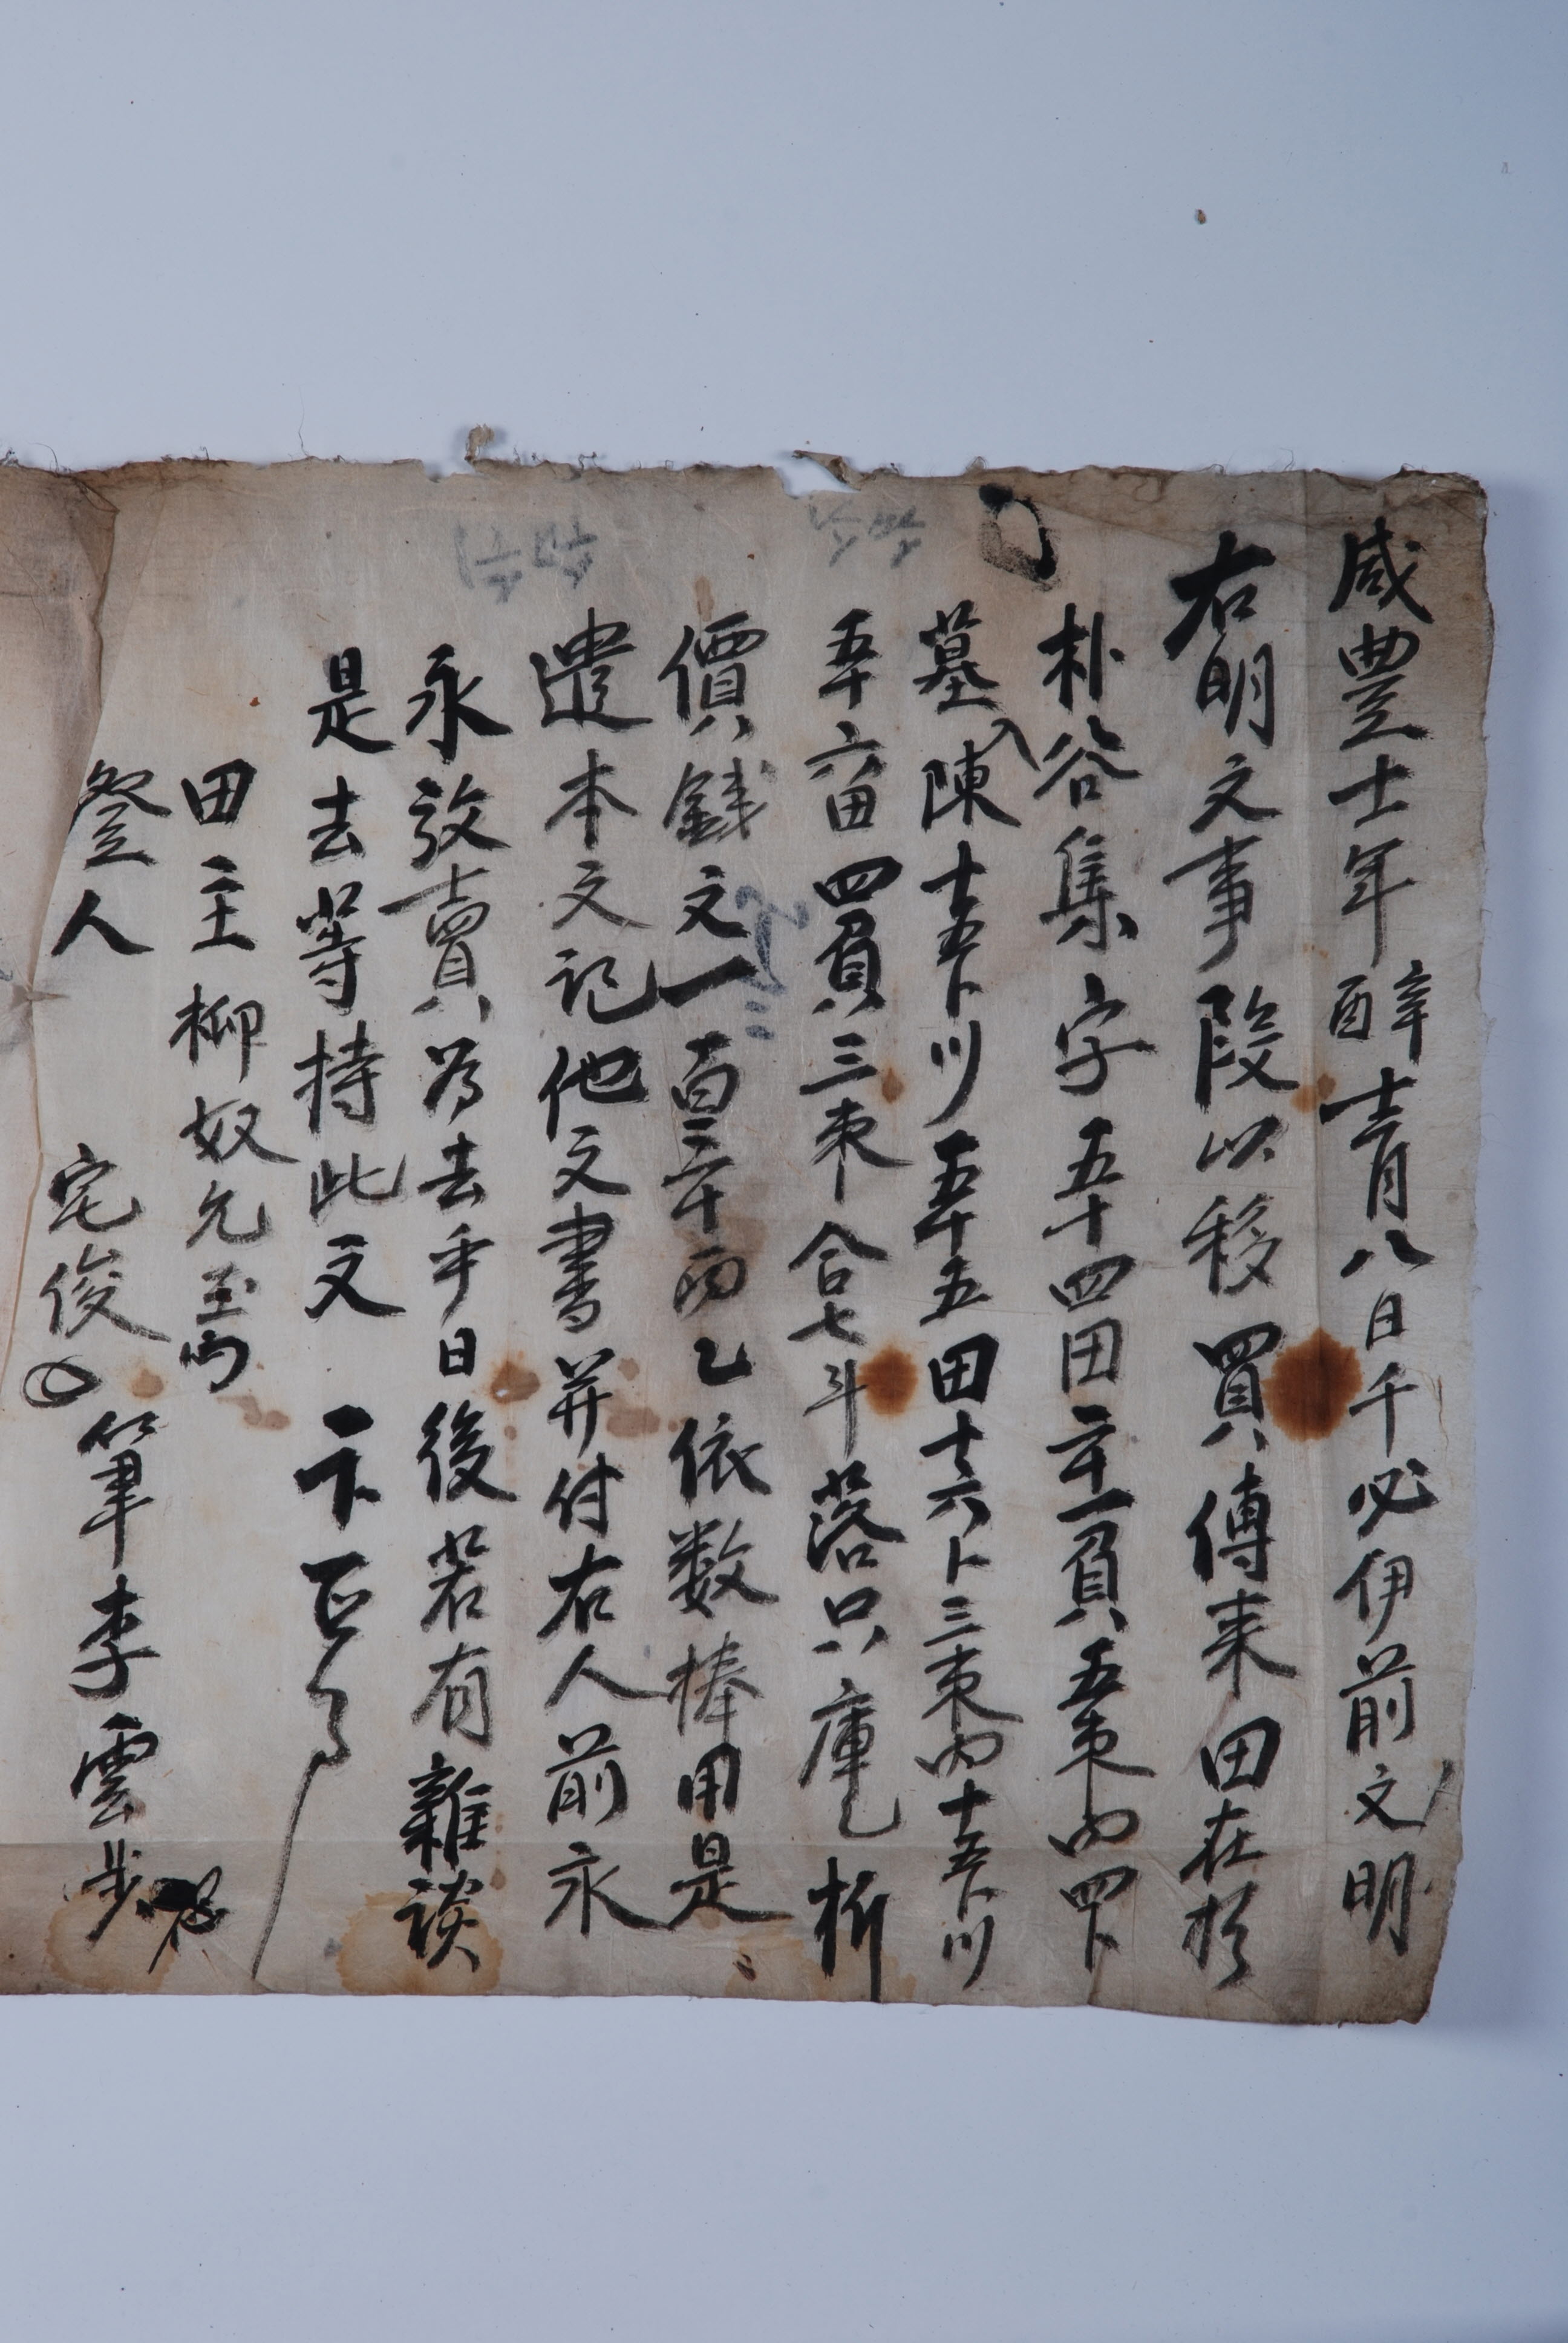 咸豊十一年辛酉十二月八日千必伊前文明
右明文事段以移買傳来田在於
朴谷集字五十四田二十一負五束內四卜
墓陳入十五卜川五十五田十六卜三束內十五卜川
五十六田四負三束合七斗落只庫乙折
價錢文一百三十両乙依数捧用是
遣本文記他文書并付右人前永
永放賣為去乎日後若有雜談
是去等持此文卞正事
田主柳奴允
證人宅俊
筆李雲步